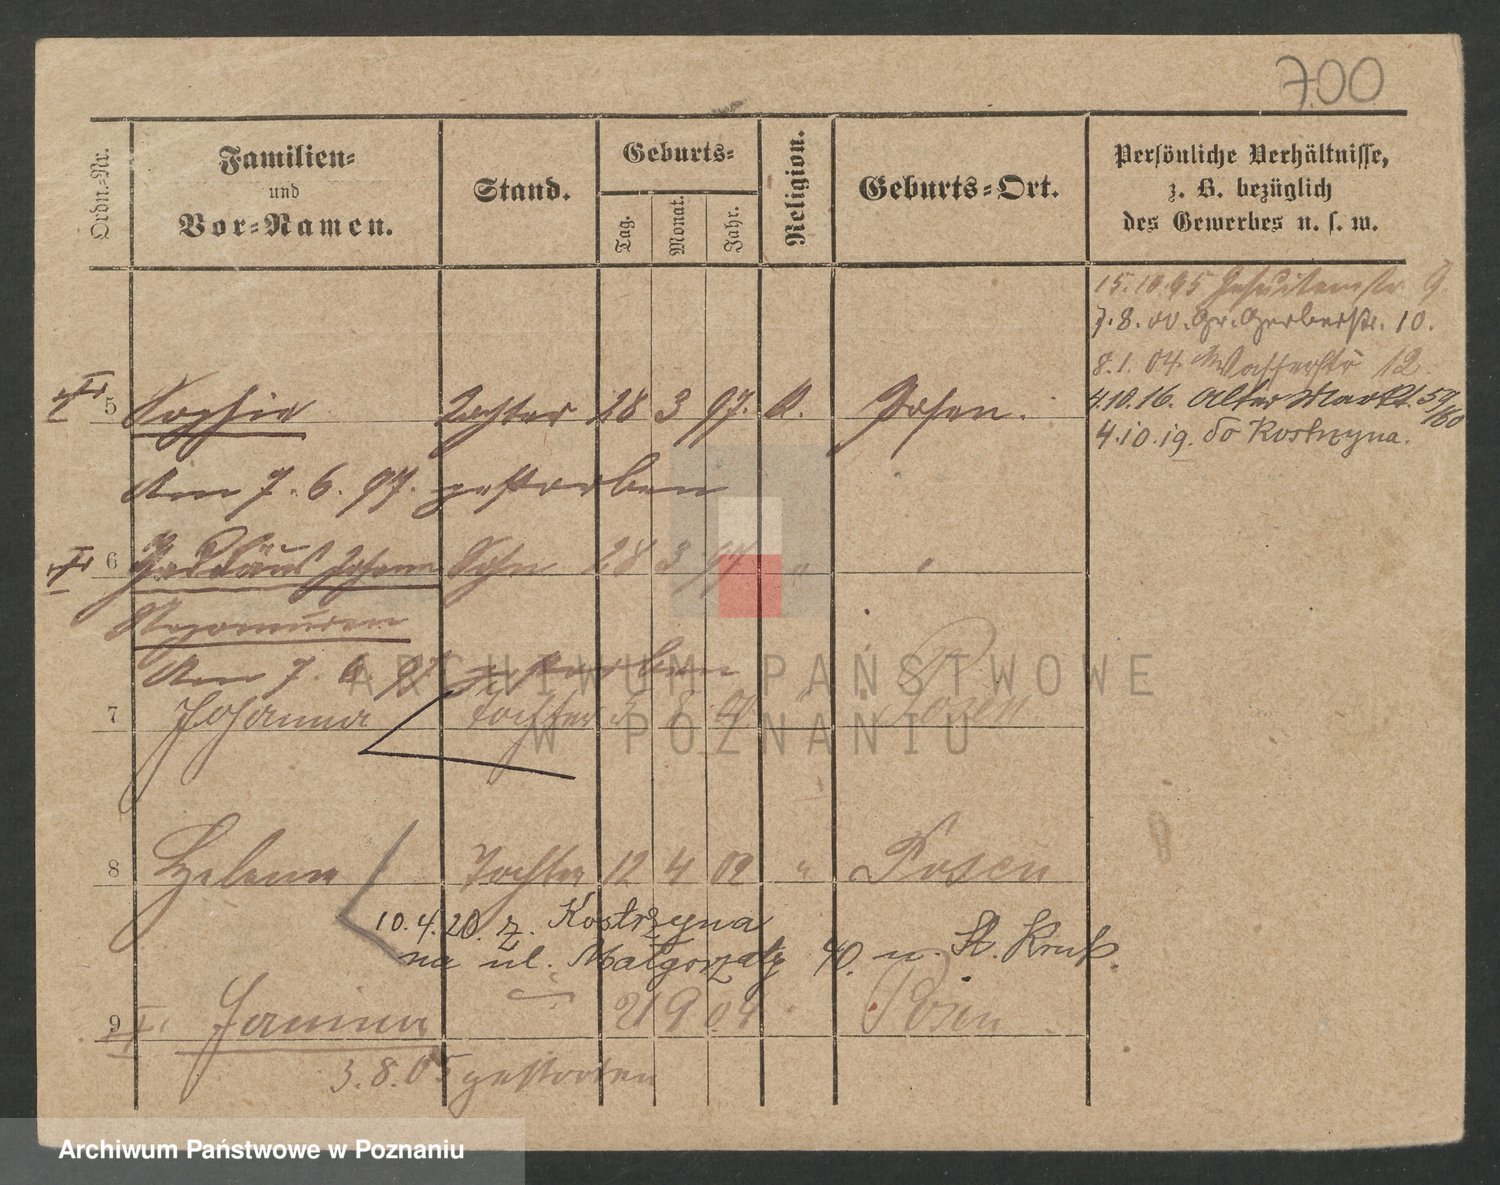 700
Ordn.-Nr.
Familien-
und
Vor-Namen.
Stand.
Geburts-
Tag.
Monat.
Jahr.
Religion.
Geburts-Ort.
Persönliche Verhältnisse,
z. B. bezüglich
des Gewerbes u. s. w.
15.10.95 Jesuitenstr. 9
7.8.00. Gr. Gerberstr. 10.
8.1.04 Wasserstr 12.
4.10.16. Alter Markt. 59/60
4.10.19. do Kostrzyna.
5 Sophie Tochter 28 3 97. K. Posen.
Am 7. 6. 97. gestorben
6 Johann Sohn 28 3 " "
Am 7. 6 97 gestorben
7 Johanna Tochter 8 " Posen
8 Helene Tochter 12 4 02 " Posen
10.4.20. z. Kostrzyna
na ul. Małgorzaty 40. u. St. Kruk.
9 Janina 21 9 04 " Posen
3.8.05 gestorben
ARCHIWUM PAŃSTWOWE
W POZNANIU
Archiwum Państwowe w Poznaniu